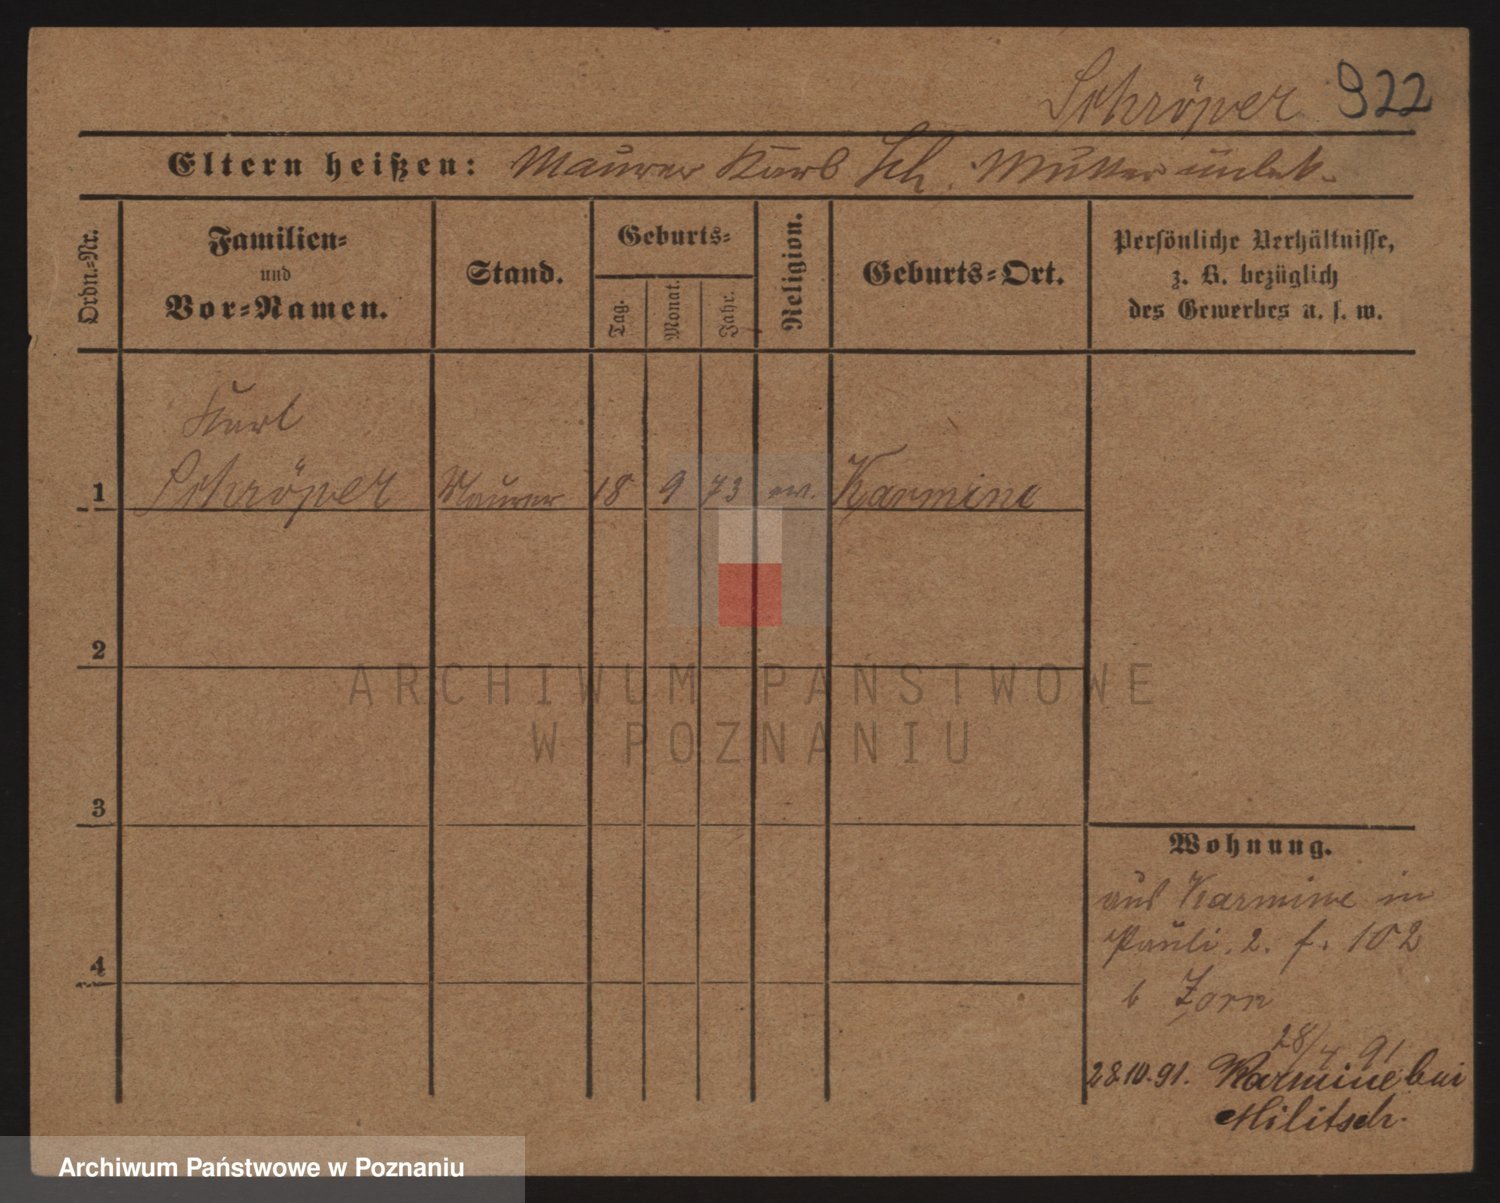 Schröper 922
Eltern heißen: Maurer Karl Sch. Mutter unbek.
Ordn.-Nr.
Familien-
und
Vor-Namen.
Stand.
Geburts-
Tag.
Monat.
Jahr.
Religion.
Geburts-Ort.
Persönliche Verhältnisse,
z. B. bezüglich
des Gewerbes u. s. w.
Karl
1 Schröper Maurer 18 9 73 ev. Karmine
2
3
4
Wohnung.
aus Karmine in
Pauli. 2. f. 102
b Zorn
28/4 91
28.10.91. Karmine bei
Militsch.
ARCHIWUM PAŃSTWOWE
W POZNANIU
Archiwum Państwowe w Poznaniu